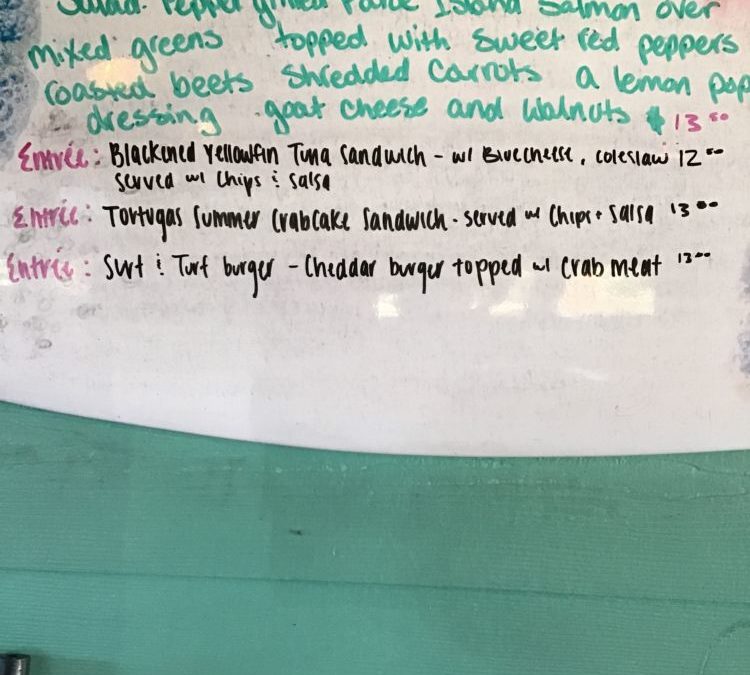 Salad: Pepper grilled Faroe Island Salmon over
mixed greens topped with sweet red peppers
roasted beets shredded carrots a lemon pop
dressing goat cheese and walnuts $13⁰⁰
Entrée: Blackened Yellowfin Tuna Sandwich - w/ Bluecheese, coleslaw 12⁰⁰
served w/ Chips & Salsa
Entrée: Tortugas Summer Crabcake Sandwich - served w/ Chips + Salsa 13⁰⁰
Entrée: Surf & Turf burger - Cheddar burger topped w/ Crab meat 13⁰⁰